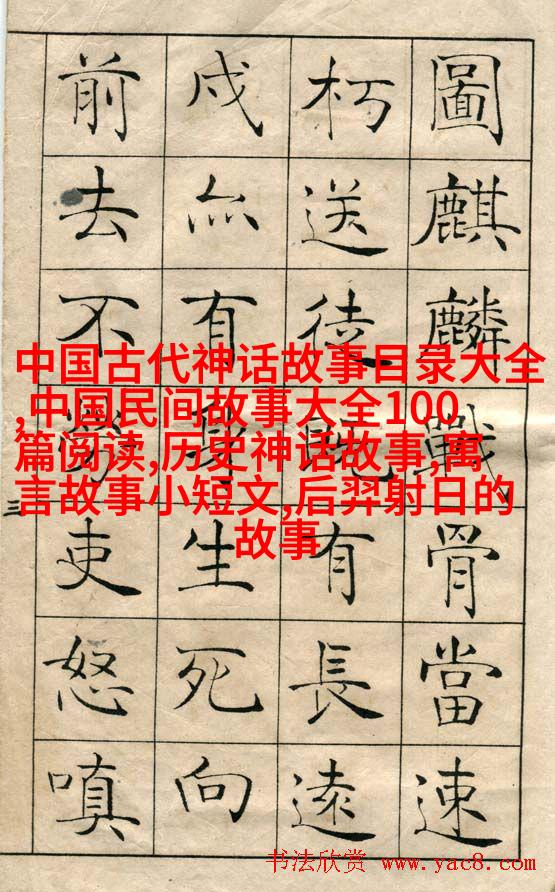 圖麒麟戰骨當速
朽送徒既有長遠
戍亦有身生死向
前去不勞吏怒嗔
三
中国古代神话故事目录大全
,中国民间故事大全100
篇阅读,历史神话故事,寓
言故事小短文,后羿射日的
故事
书法欣赏 www.yac8.com